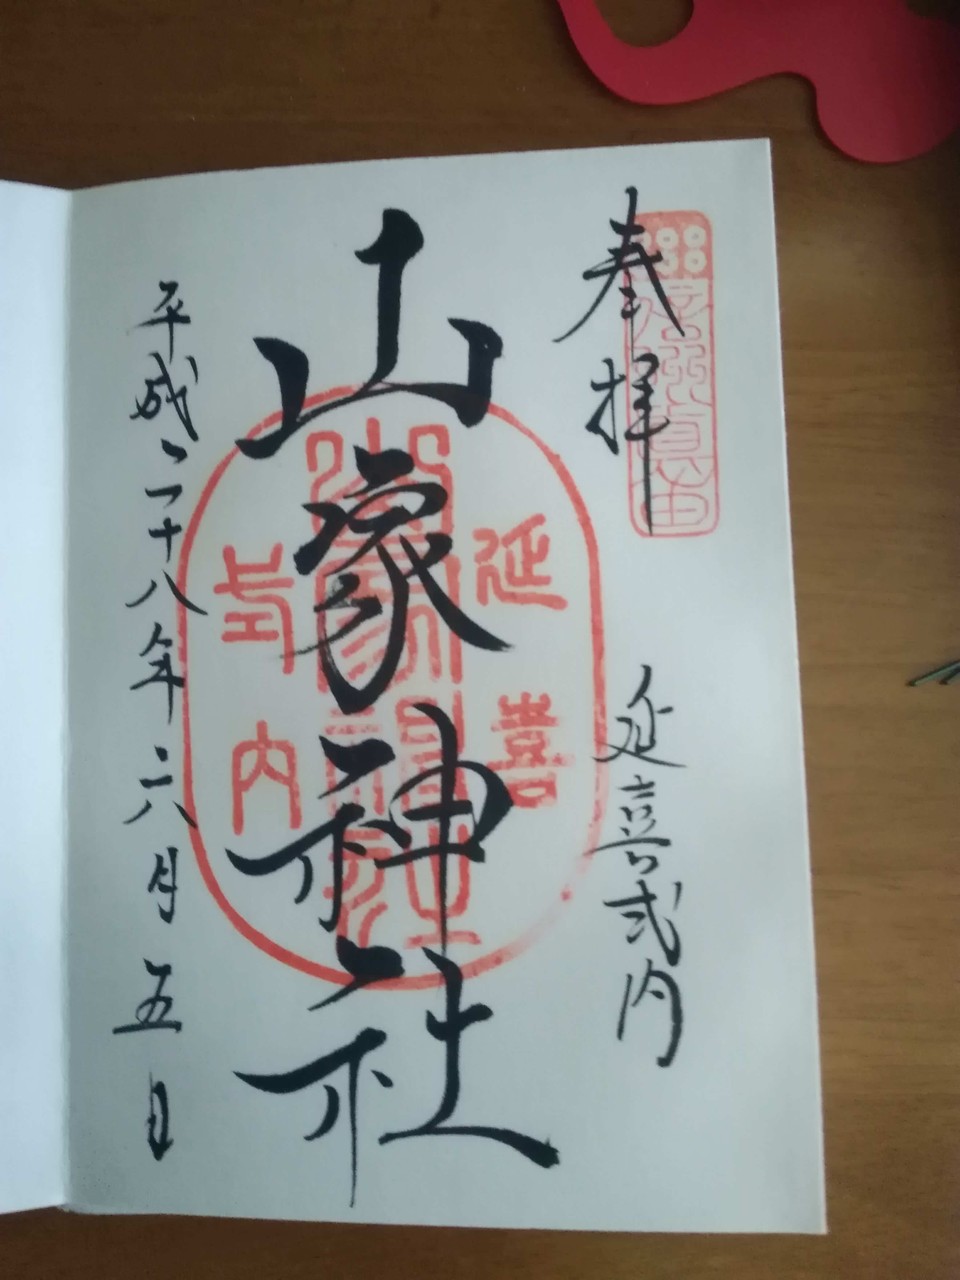 奉拝
信州真田
延喜式内
山家神社
延喜
山家神社
式内
平成二十八年六月五日